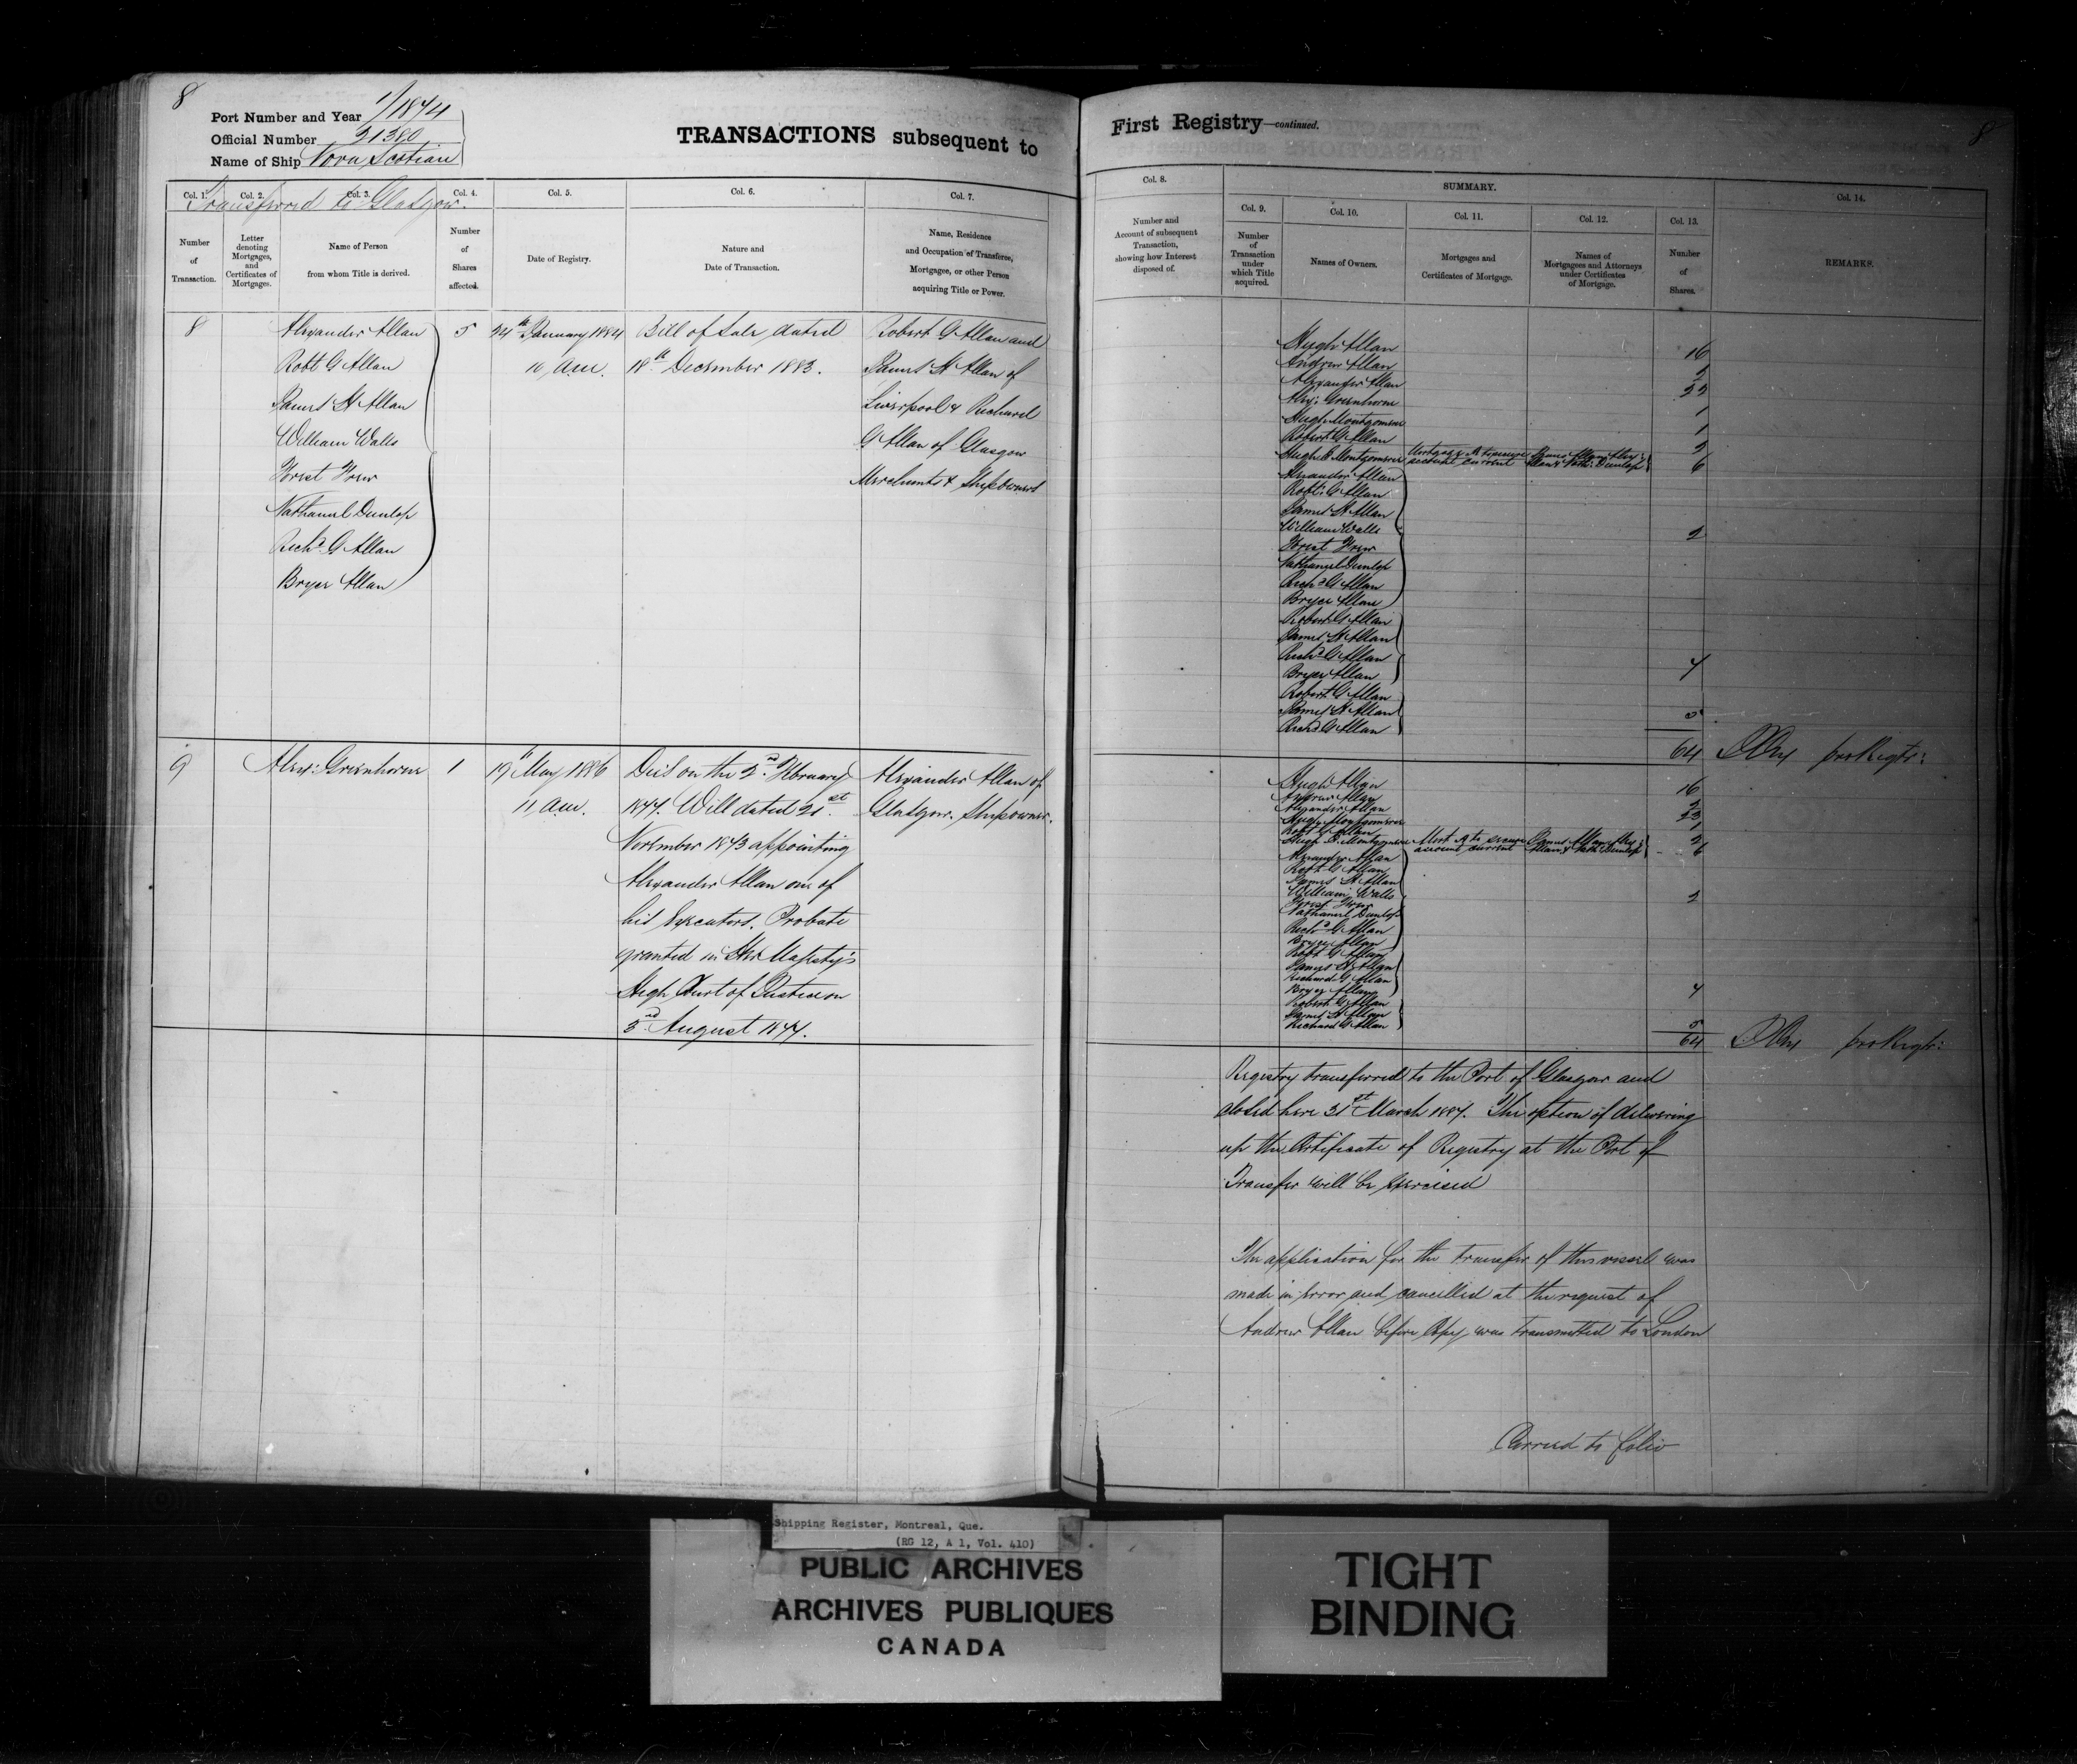 8
Port Number and Year 1/1874
Official Number 21380
Name of Ship Nova Scotian
TRANSACTIONS subsequent to
Transferred to Glasgow.
Col. 1. Col. 2. Col. 3. Col. 4. Col. 5. Col. 6. Col. 7.
Number of Transaction.
Letter denoting Mortgages, and Certificates of Mortgages.
Name of Person from whom Title is derived.
Number of Shares affected.
Date of Registry.
Nature and Date of Transaction.
Name, Residence and Occupation of Transferee, Mortgagee, or other Person acquiring Title or Power.
8 Alexander Allan 5 24th January 1884 Bill of Sale dated Robert G Allan and
Robt G Allan 10 am. 18th December 1883. James St Allan of
James St Allan Liverpool & Richard
William Walls G Allan of Glasgow
Forest Frew Merchants & Shipowners
Nathanel Dunlop
Richd G Allan
Bryce Allan
9 Alex: Greenhorne 1 19th May 1886 Died on the 2nd February Alexander Allan of
11 am. 1877. Will dated 21st Glasgow. Shipowner.
November 1873 appointing
Alexander Allan one of
his Executors. Probate
granted in Her Majesty's
High Court of Justice on
3rd August 1877.
First Registry—continued.
8
Col. 8. SUMMARY. Col. 14.
Col. 9. Col. 10. Col. 11. Col. 12. Col. 13.
Number and Account of subsequent Transaction, showing how Interest disposed of.
Number of Transaction under which Title acquired.
Names of Owners.
Mortgages and Certificates of Mortgage.
Names of Mortgagees and Attorneys under Certificates of Mortgage.
Number of Shares.
REMARKS.
Hugh Allan 16
Andrew Allan 2
Alexander Allan 22
Alex: Greenhorne 1
Hugh Montgomerie 1
Robert G Allan 2
Hugh B Montgomerie Mortgage A to secure James Allan, Alex: 6
account current Allan & Nath: Dunlop
Alexander Allan
Robt: G Allan
James St Allan
William Walls 2
Forest Frew
Nathanyel Dunlop
Richd G Allan
Bryce Allan
Robert G Allan
James St Allan
Richd G Allan 4
Bryce Allan
Robert G Allan
James St Allan 5
Richd G Allan
64 pro Regtr:
Hugh Allan 16
Andrew Allan 2
Alexander Allan 23
Hugh Montgomerie 1
Robt G Allan 2
Hugh B. Montgomerie Mort. A to secure James Allan, Alex: 6
account current Allan & Nath: Dunlop
Alexander Allan
Robt G Allan
James St Allan
William Walls 2
Forest Frew
Nathanel Dunlop
Richd G Allan
Bryce Allan
Robt G Allan
James St Allan
Richard G Allan
Bryce Allan 4
Robert G Allan
James St Allan
Richard G Allan 5
64 pro Regtr:
Registry transferred to the Port of Glasgow and
closed here 31st March 1887. The option of delivering
up the Certificate of Registry at the Port of
Transfer will be exercised
The application for the transfer of this vessel was
made in error and cancelled at the request of
Andrew Allan before Copy was transmitted to London
Carried to folio
Shipping Register, Montreal, Que.
(RG 12, A 1, Vol. 410)
PUBLIC ARCHIVES
ARCHIVES PUBLIQUES
CANADA
TIGHT
BINDING